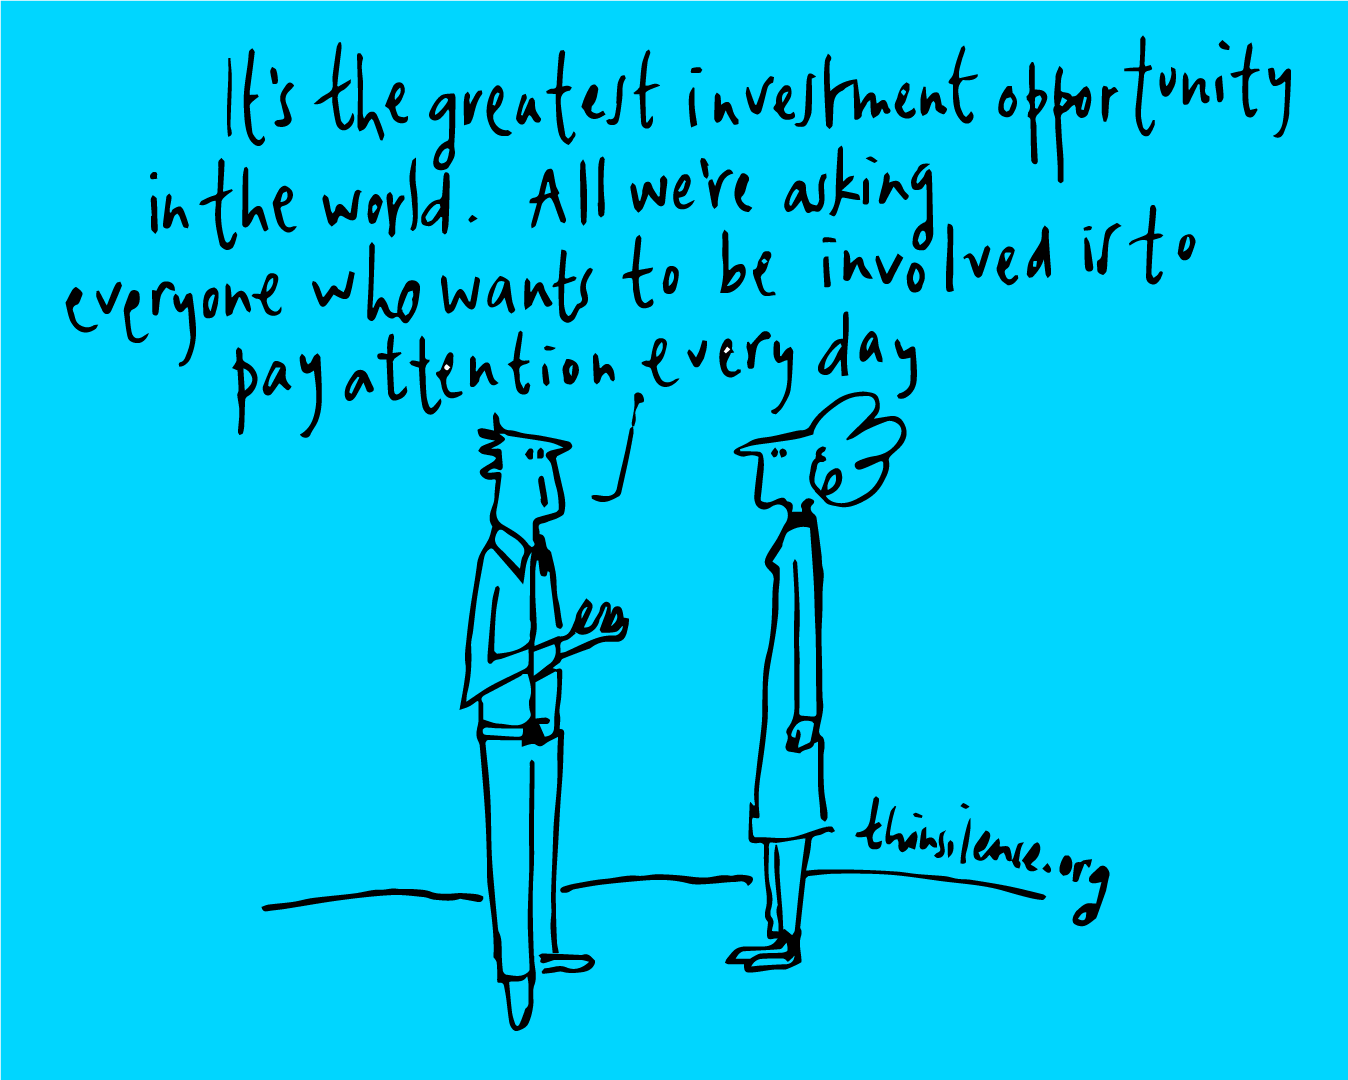 It's the greatest investment opportunity
in the world. All we're asking
everyone who wants to be involved is to
pay attention every day
thinsilence.org